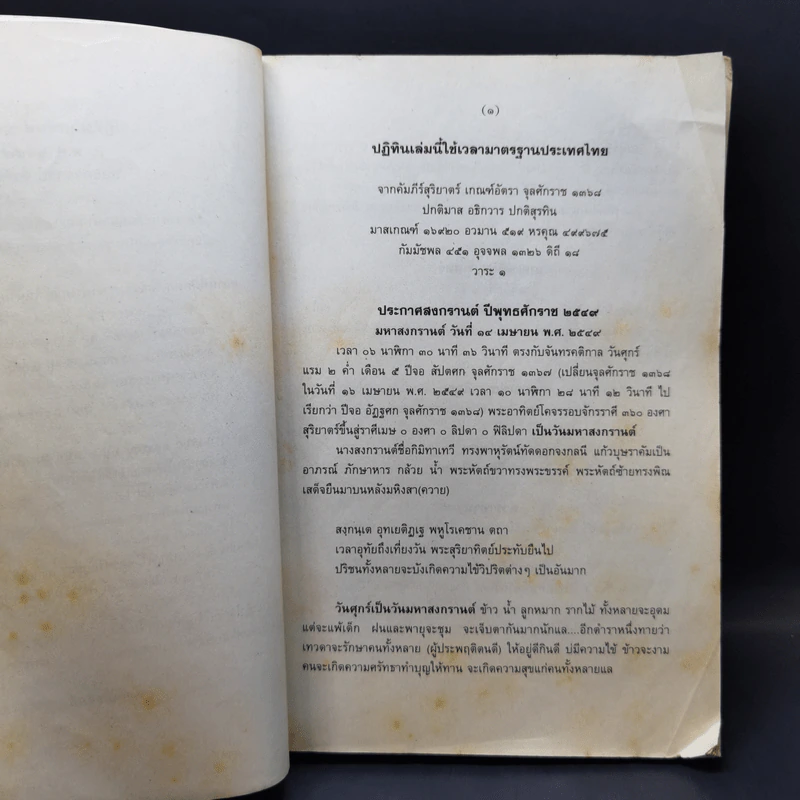 (๑)
ปฏิทินเล่มนี้ใช้เวลามาตรฐานประเทศไทย
จากคัมภีร์สุริยาตร์ เกณฑ์อัตรา จุลศักราช ๑๓๖๘
ปกติมาส อธิกวาร ปกติสุรทิน
มาสเกณฑ์ ๑๖๙๒๐ อวมาน ๕๑๙ หรคุณ ๔๙๙๖๗๕
กัมมัชพล ๔๕๑ อุจจพล ๑๓๒๖ ดิถี ๑๘
วาระ ๑
ประกาศสงกรานต์ ปีพุทธศักราช ๒๕๔๙
มหาสงกรานต์ วันที่ ๑๔ เมษายน พ.ศ. ๒๕๔๙
เวลา ๐๖ นาฬิกา ๓๐ นาที ๓๖ วินาที ตรงกับจันทรคติกาล วันศุกร์
แรม ๒ ค่ำ เดือน ๕ ปีจอ สัปตศก จุลศักราช ๑๓๖๗ (เปลี่ยนจุลศักราช ๑๓๖๘
ในวันที่ ๑๖ เมษายน พ.ศ. ๒๕๔๙ เวลา ๑๐ นาฬิกา ๒๘ นาที ๑๒ วินาที ไป
เรียกว่า ปีจอ อัฏฐศก จุลศักราช ๑๓๖๘) พระอาทิตย์โคจรรอบจักรราศี ๓๖๐ องศา
สุริยาตร์ขึ้นสู่ราศีเมษ ๐ องศา ๐ ลิปดา ๐ ฟิลิปดา เป็นวันมหาสงกรานต์
นางสงกรานต์ชื่อกิมิทาเทวี ทรงพาหุรัตน์ทัดดอกจงกลนี แก้วบุษราคัมเป็น
อาภรณ์ ภักษาหาร กล้วย น้ำ พระหัตถ์ขวาทรงพระขรรค์ พระหัตถ์ซ้ายทรงพิณ
เสด็จยืนมาบนหลังมหิงสา(ควาย)
สงฺกนฺเต อุทเยติฏเฐ พหูโรเคชาน ตถา
เวลาอุทัยถึงเที่ยงวัน พระสุริยาทิตย์ประทับยืนไป
ปริชนทั้งหลายจะบังเกิดความไข้วิปริตต่างๆ เป็นอันมาก
วันศุกร์เป็นวันมหาสงกรานต์ ข้าว น้ำ ลูกหมาก รากไม้ ทั้งหลายจะอุดม
แต่จะแพ้เด็ก ฝนและพายุจะชุม จะเจ็บตากันมากนักแล....อีกตำราหนึ่งทายว่า
เทวดาจะรักษาคนทั้งหลาย (ผู้ประพฤติตนดี) ให้อยู่ดีกินดี บ่มีความไข้ ข้าวจะงาม
คนจะเกิดความศรัทธาทำบุญให้ทาน จะเกิดความสุขแก่คนทั้งหลายแล